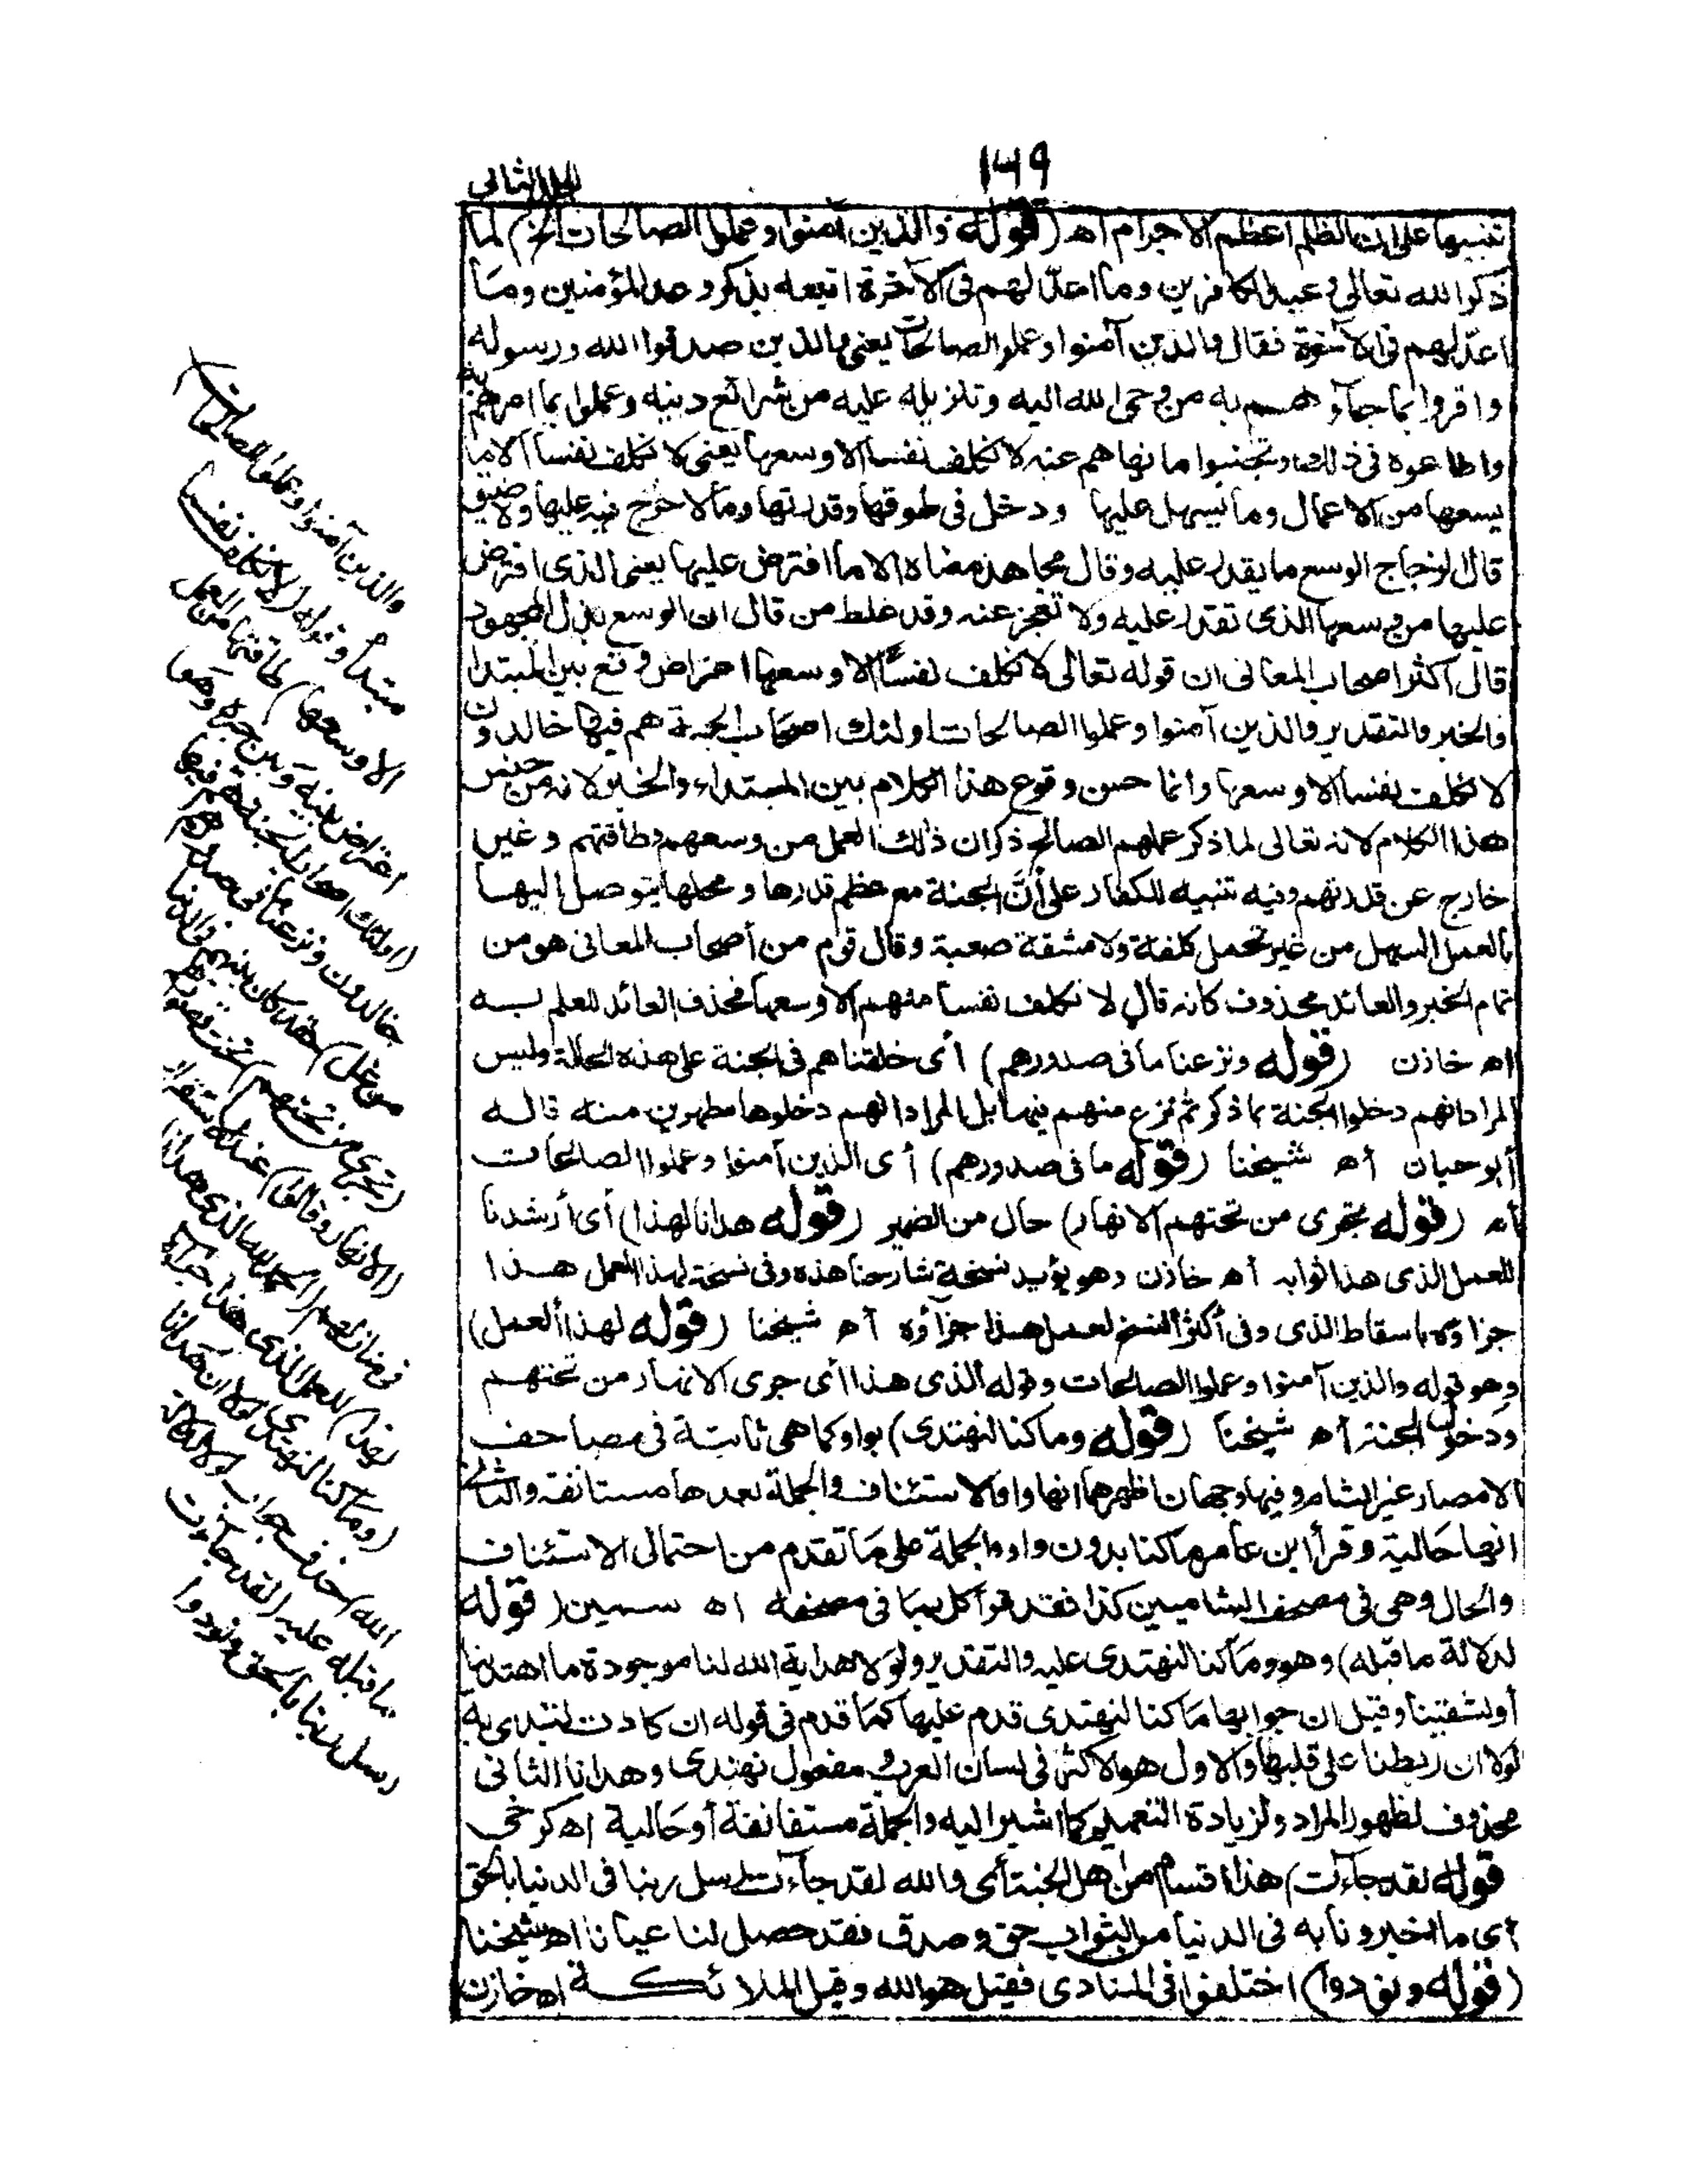 ١٦٩
الجلد الثاني
تنبيها على ان الظلم اعظم الاجرام اه (قوله والذين آمنوا وعملوا الصالحات الخ) لما
ذكر الله تعالى وعيد الكافرين وما اعدّ لهم فى الآخرة اتبعه بذكر وعد المؤمنين ومَا
اعدّ لهم فى الآخرة فقال والذين آمنوا وعملوا الصالحات يعنى والذين صدقوا الله ورسوله
واقروا بما جاءهم به من وحى الله اليه وتنزيله عليه من شرائع دينه وعملوا بما امرهم به
واطاعوه فى ذلك وتجنبوا ما نهاهم عنه لا نكلف نفسا الا وسعها يعنى لا نكلف نفسا الا ما
يسعها من الاعمال وما يسهل عليها ودخل فى طوقها وقدرتها وما لا حرج فيه عليها ولا ضيق
قال الزجاج الوسع ما يقدر عليه وقال مجاهد معناه الا ما افترض عليها يعنى الذى افترض
عليها من وسعها الذى تقدر عليه ولا تعجز عنه وقد غلط من قال ان الوسع بذل المجهود
قال اكثر اصحاب المعانى ان قوله تعالى لا نكلف نفسًا الا وسعها اعتراض وقع بين المبتدا
والخبر والتقدير والذين آمنوا وعملوا الصالحات اولئك اصحاب الجنة هم فيها خالدون
لا نكلف نفسا الا وسعها وانما حسن وقوع هذا الكلام بين المبتداء والخبر لانه من جنس
هذا الكلام لانه تعالى لما ذكر عملهم الصالح ذكر ان ذلك العمل من وسعهم وطاقتهم وغير
خارج عن قدرتهم وفيه تنبيه للكفار على أنَّ الجنة مع عظم قدرها ومحلها يتوصل اليها
بالعمل السهل من غير تحمل كلفة ولا مشقة صعبة وقال قوم من أصحاب المعانى هو من
تمام الخبر والعائد محذوف كانه قال لا نكلف نفسا منهم الا وسعها فحذف العائد للعلم به
اه خازن (قوله ونزعنا ما فى صدورهم) أى خلقناهم فى الجنة على هذه الحالة وليس
المراد انهم دخلوا الجنة بما ذكر ثم نزع منهم فيها بل المراد انهم دخلوها مطهرين منه قاله
أبو حيان أه شيخنا (قوله ما فى صدورهم) أى الذين آمنوا وعملوا الصالحات
أه (قوله تجرى من تحتهم الانهار) حال من الضمير (قوله هدانا لهذا) أى أرشدنا
للعمل الذى هذا ثوابه أه خازن وهو يؤيد نسخة شارحنا هذه وفى نسخة لهذا العمل هذا
جزاؤه باسقاط الذى وفى أكثر النسخ لعمل هذا جزاؤه أه شيخنا (قوله لهذا العمل)
وهو قوله والذين آمنوا وعملوا الصالحات وقوله الذى هذا أى جرى الانهار من تحتهم
ودخول الجنة أه شيخنا (قوله وما كنا لنهتدى) بواو كما هى ثابتة فى مصاحف
الامصار غير الشام وفيها وجهان اظهرهما انها واو الاستئناف والجملة بعدها مستانفة والثانى
انها حَالية وقرأ ابن عامر ما كنا بدون واو والجملة على مَا تقدم من احتمالى الاستئناف
والحال وهى فى مصحف الشاميين كذا فقد قرأ كل بما فى مصحفه اه سمين (قوله
لدلالة ما قبله) وهو وما كنا لنهتدى عليه والتقدير ولولا هداية الله لنا موجودة ما اهتدينا
أو لشقينا وقيل ان جوابها مَا كنا لنهتدى قدم عليها كمَا قدم فى قوله ان كادت لتبدى به
لولا ان ربطنا على قلبها والاول هو الاكثر فى لسان العرب ومفعول نهتدى وهدانا الثانى
محذوف لظهور المراد ولزيادة التعميم كما اشير اليه والجملة مستانفة أو حَالية اه كرخى
قوله لقد جآءت) هذا اقسام من اهل الجنة أى والله لقد جآءت رسل ربنا فى الدنيا بالحق
أى ما اخبرونا به فى الدنيا من الثواب حق وصدق فقد حصل لنا عيانا اه شيخنا
(قوله ونودوا) اختلفوا فى المنادى فقيل هو الله وقيل الملائكة اه خازن
والذين آمنوا وعملوا الصالحات
مبتدأ وقوله (لا نكلف نفسا
الا وسعها) طاقتها من العمل
اعتراض بينه وبين خبره وهو
(اولئك اصحاب الجنة هم فيها
خالدون ونزعنا ما فى صدورهم
من غل) حقد كان بينهم فى الدنيا
(تجرى من تحتهم) تحت قصورهم
(الانهار وقالوا) عند الاستقرار
فى منازلهم (الحمد لله الذى هدانا
لهذا) للعمل الذى هذا جزاؤه
(وما كنا لنهتدى لولا ان هدانا
الله) حذف جواب لولا لدلالة
ما قبله عليه (لقد جاءت
رسل ربنا بالحق ونودوا